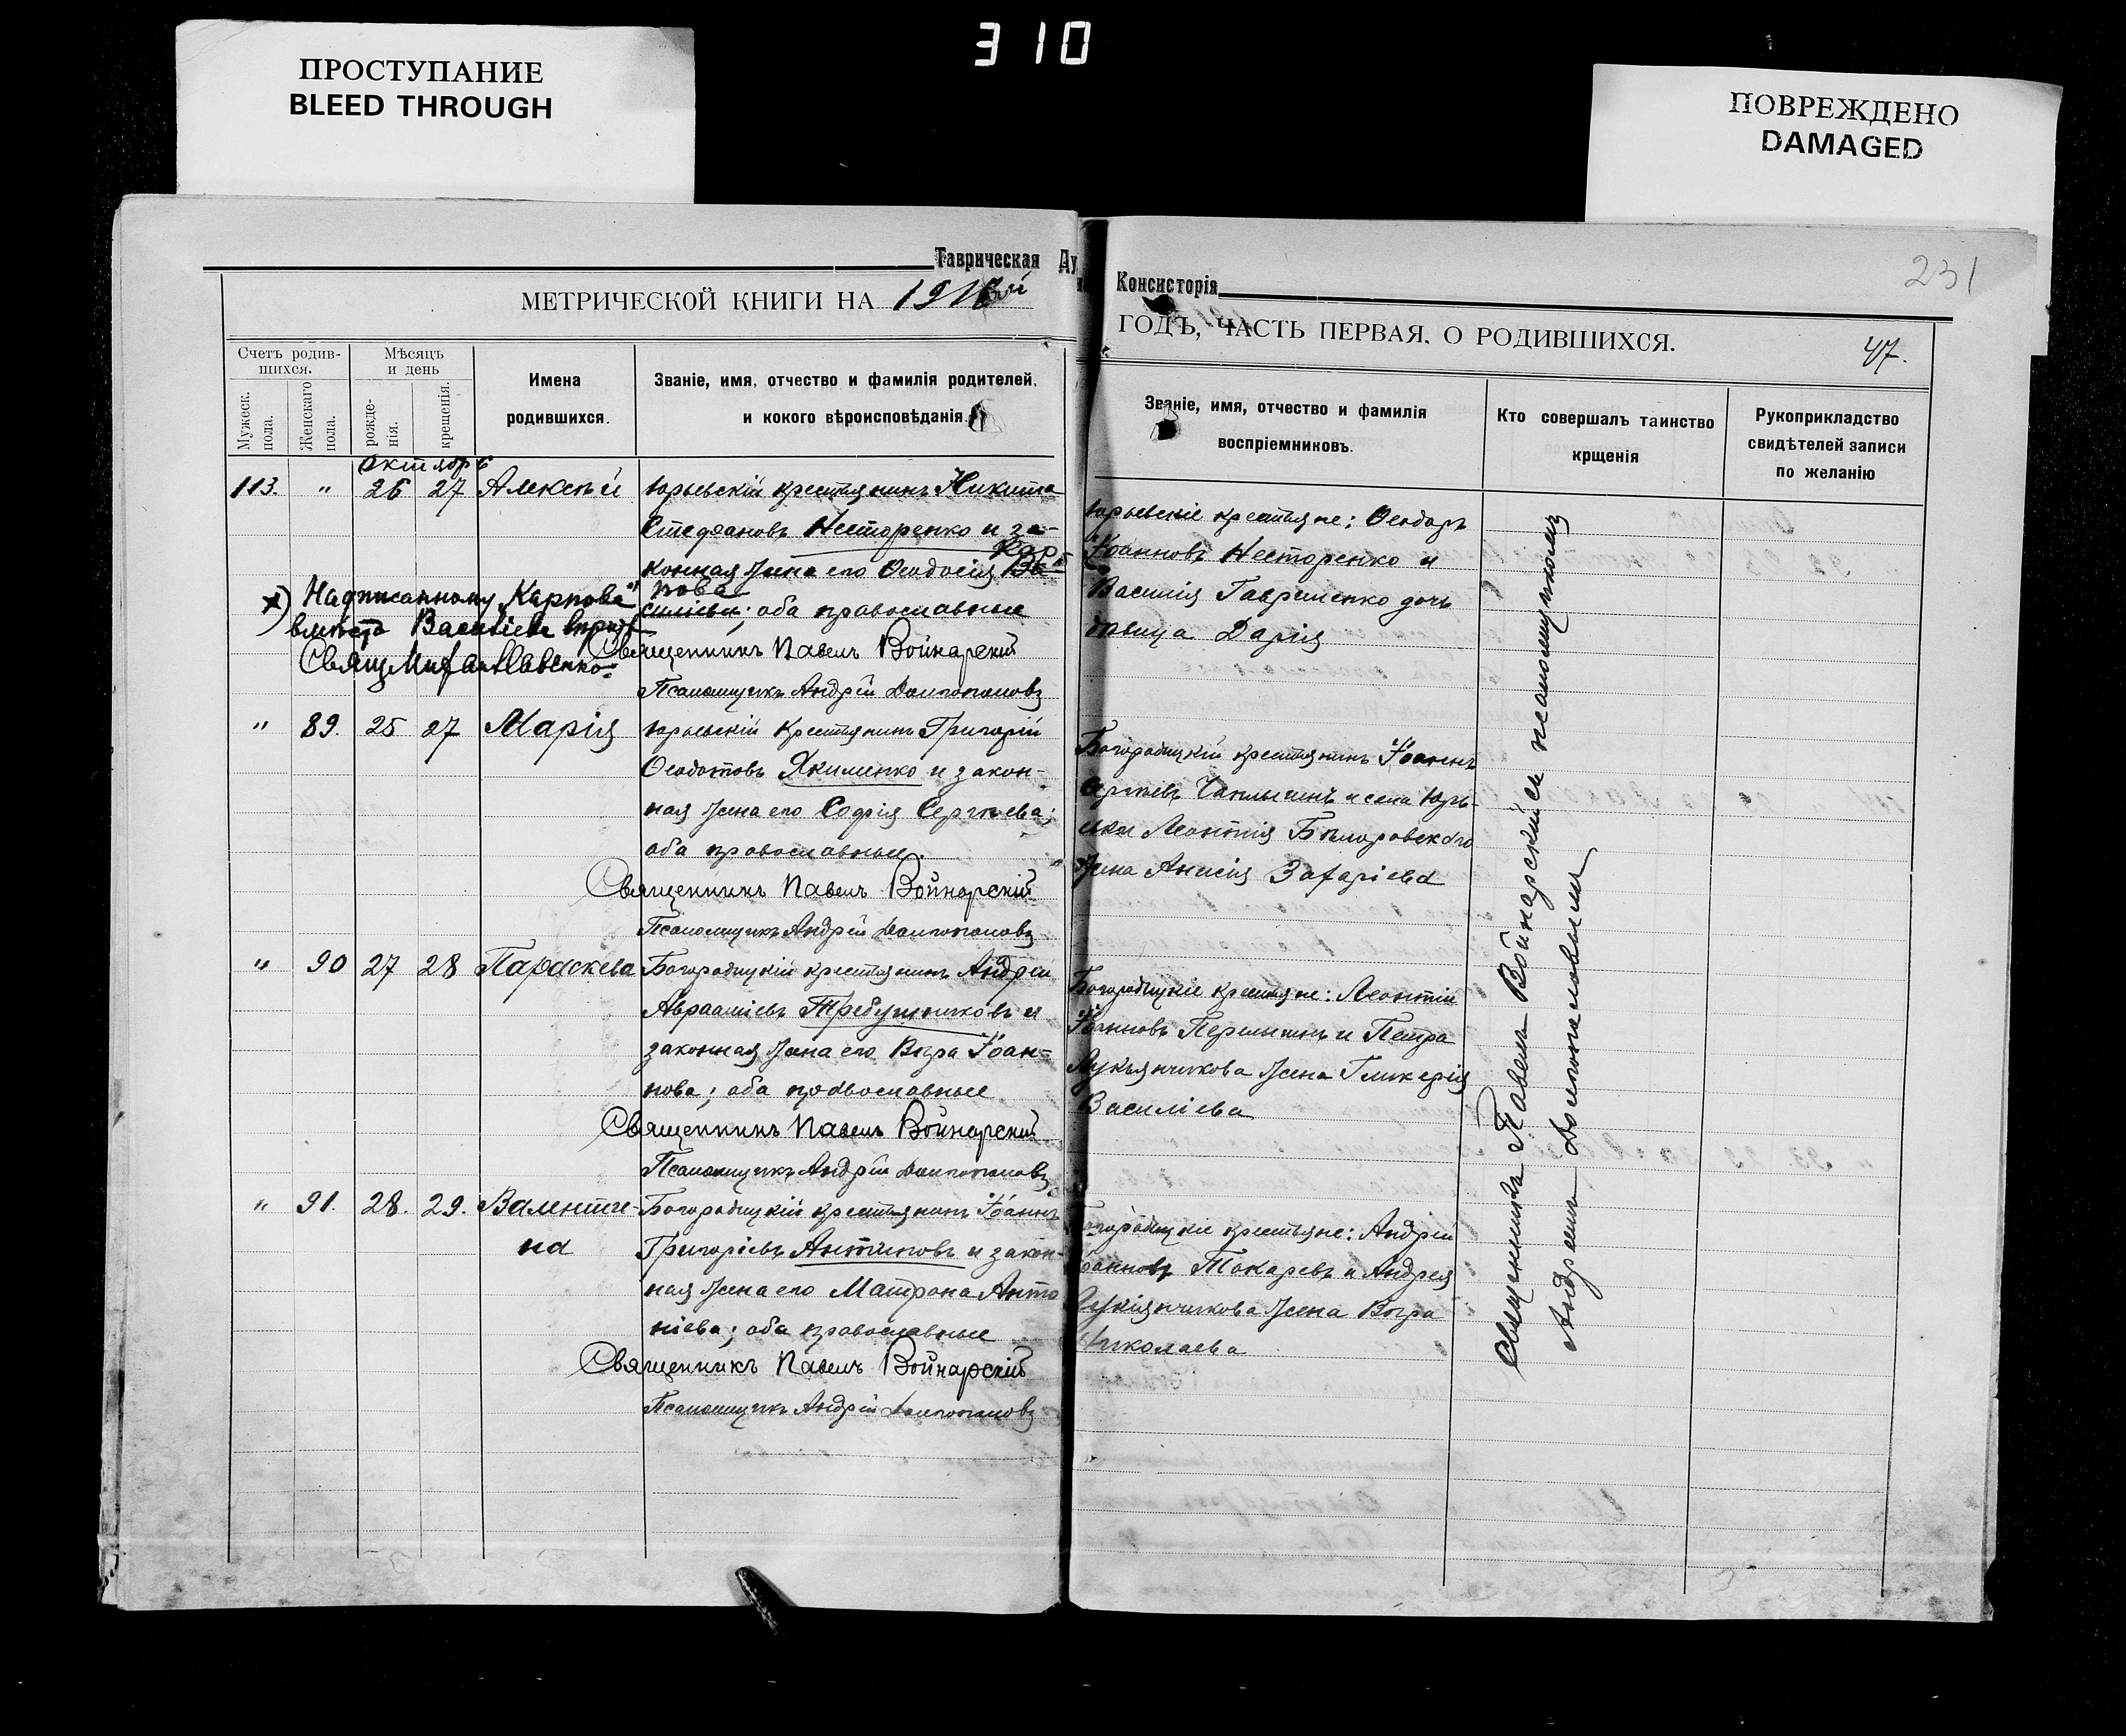 310
ПРОСТУПАНИЕ
BLEED THROUGH
ПОВРЕЖДЕНО
DAMAGED
Таврическая Ду
Консисторія
231
МЕТРИЧЕСКОЙ КНИГИ НА 1916ый
ГОДЪ, ЧАСТЬ ПЕРВАЯ, О РОДИВШИХСЯ.
47.
Счетъ родив-
шихся.
Мужеск.
пола.
Женскаго
пола.
Мѣсяцъ
и день
рожде-
нія.
крещенія.
Имена
родившихся.
Званіе, имя, отчество и фамилія родителей,
и кокого вѣроисповѣданія.
Званіе, имя, отчество и фамилія
воспріемниковъ.
Кто совершалъ таинство
крщенія
Рукоприкладство
свидѣтелей записи
по желанію
Октябрь
113. " 26 27 Алексѣй
Юрьевскій крестьянинъ Никита
Стефановъ Несторенко и за-
конная жена его Ѳеодосія Ва-
Кар-
пова
силіева; оба православные
Священникъ Павелъ Войнарскій
Псаломщикъ Андрій Долгополовъ
х) Надписанному „Карпова"
вмѣсто Василіева вѣрить
Свящ. Мих. Павленко
Юрьевскіе крестьяне: Ѳеодоръ
Іоанновъ Несторенко и
Василія Гавриленко дочь
дѣвица Дарія
" 89. 25 27 Марія
Юрьевскій крестьянинъ Григорій
Ѳеодотовъ Якименко и закон-
ная жена его Софія Сергѣева;
оба православные.
Священникъ Павелъ Войнарскій
Псаломщикъ Андрій Долгополовъ
Богородицкій крестьянинъ Іоаннъ
Сергѣевъ Чаплыгинъ и села Юрь-
евки Леонтія Бѣлоровскаго
жена Анисія Захаріева
" 90 27 28 Параскева
Богородицкій крестьянинъ Андрей
Авраамiевъ Требушниковъ и
законная жена его Вѣра Іоан-
нова; оба православные
Священникъ Павелъ Войнарскій
Псаломщикъ Андрій Долгополовъ
Богородицкіе крестьяне: Леонтій
Іоанновъ Першинъ и Петра
Лукьянчикова жена Гликерія
Василіева
" 91. 28. 29. Валенти-
на
Богородицкій крестьянинъ Іоаннъ
Григоріевъ Антиповъ и закон-
ная жена его Матрона Анто
ніева; оба православные
Священникъ Павелъ Войнарскій
Псаломщикъ Андрій Долгополовъ
Богородицкіе крестьяне: Андрей
Іоанновъ Токаревъ и Андрея
Лукіянчикова жена Вѣра
Николаева
Священникъ Павелъ Войнарскій съ псаломщикомъ
Андреемъ Долгополовымъ